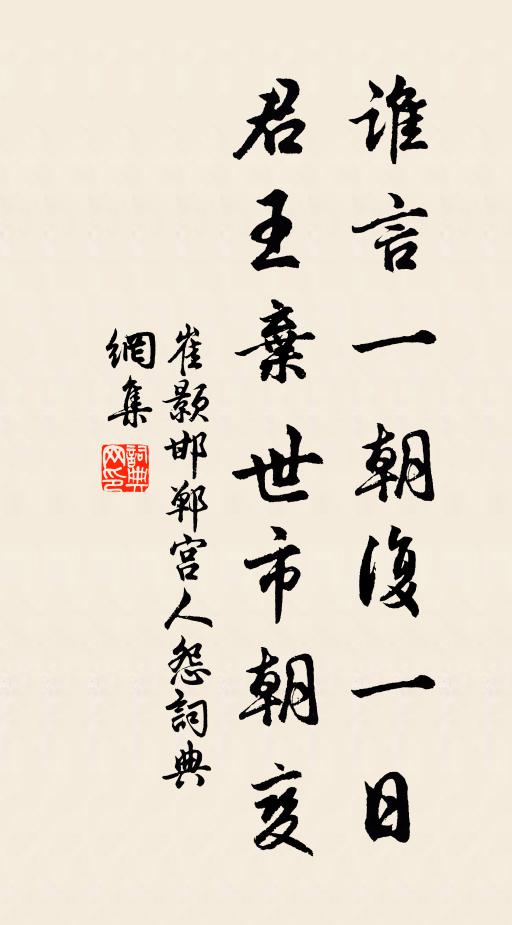 誰言一朝復一日
君王棄世市朝變
崔顥邯鄲宮人怨詞典
網集
詞典
网印